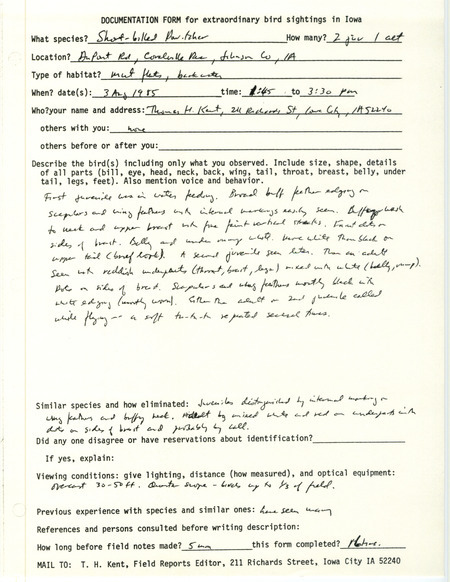 DOCUMENTATION FORM for extraordinary bird sightings in Iowa
What species? Short-billed Dowitcher How many? 2 juv 1 adt
Location? DuPont Rd, Coralville Res, Johnson Co, IA
Type of habitat? mud flats, backwater
When? date(s): 3 Aug 1985 time: 1:45 to 3:30 pm
Who? your name and address: Thomas H. Kent, 211 Richards St, Iowa City, IA 52240
others with you: none
others before or after you:
Describe the bird(s) including only what you observed. Include size, shape, details
of all parts (bill, eye, head, neck, back, wing, tail, throat, breast, belly, under
tail, legs, feet). Also mention voice and behavior.
First juvenile was in water feeding. Broad buff feather edging on
scapulars and wing feathers with internal markings easily seen. Buffy wash
to neck and upper breast with fine faint vertical streaks. Faint dots on
sides of breast. Belly and under wing white. more white than black on
upper tail (brief look). A second juvenile seen later. Then an adult
seen with reddish underparts (throat, breast, legs) mixed with white (belly, rump).
Dots on sides of breast. Scapulars and wing feathers mostly black with
white edging (mostly worn). Either the adult or 2nd juvenile called
while flying – a soft tu-tu-tu repeated several times.
Similar species and how eliminated: Juveniles distinguished by internal marking on
wing feathers and buffy neck. Adult by mixed white and red on underparts with
dots on sides of breast and probably by call.
Did any one disagree or have reservations about identification?
If yes, explain:
Viewing conditions: give lighting, distance (how measured), and optical equipment:
overcast 30-50 ft. Questar scope - birds up to 1/3 of field.
Previous experience with species and similar ones: have seen many
References and persons consulted before writing description:
How long before field notes made? 5 min this form completed?
MAIL TO: T. H. Kent, Field Reports Editor, 211 Richards Street, Iowa City IA 52240